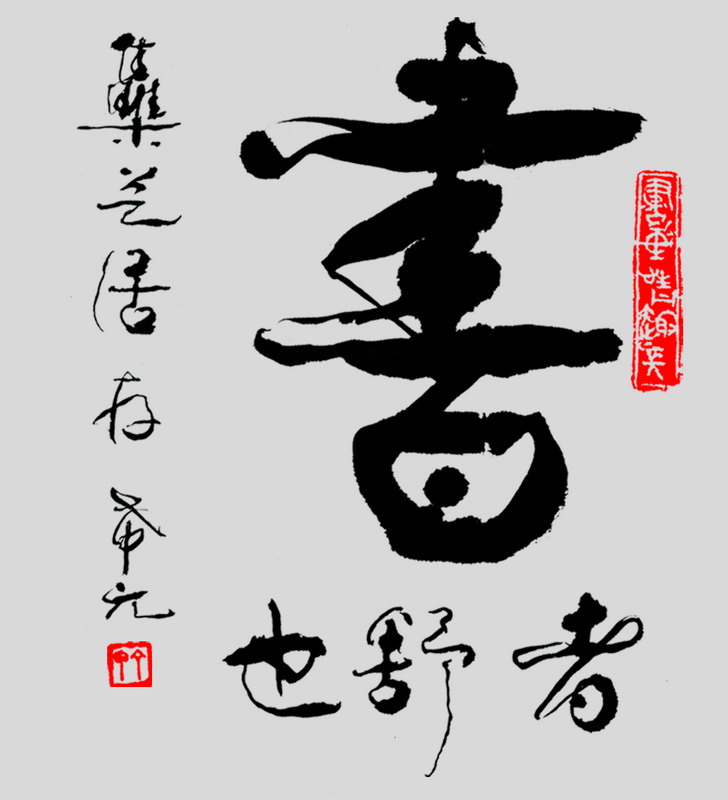 書
者舒也
集芝居存 希元